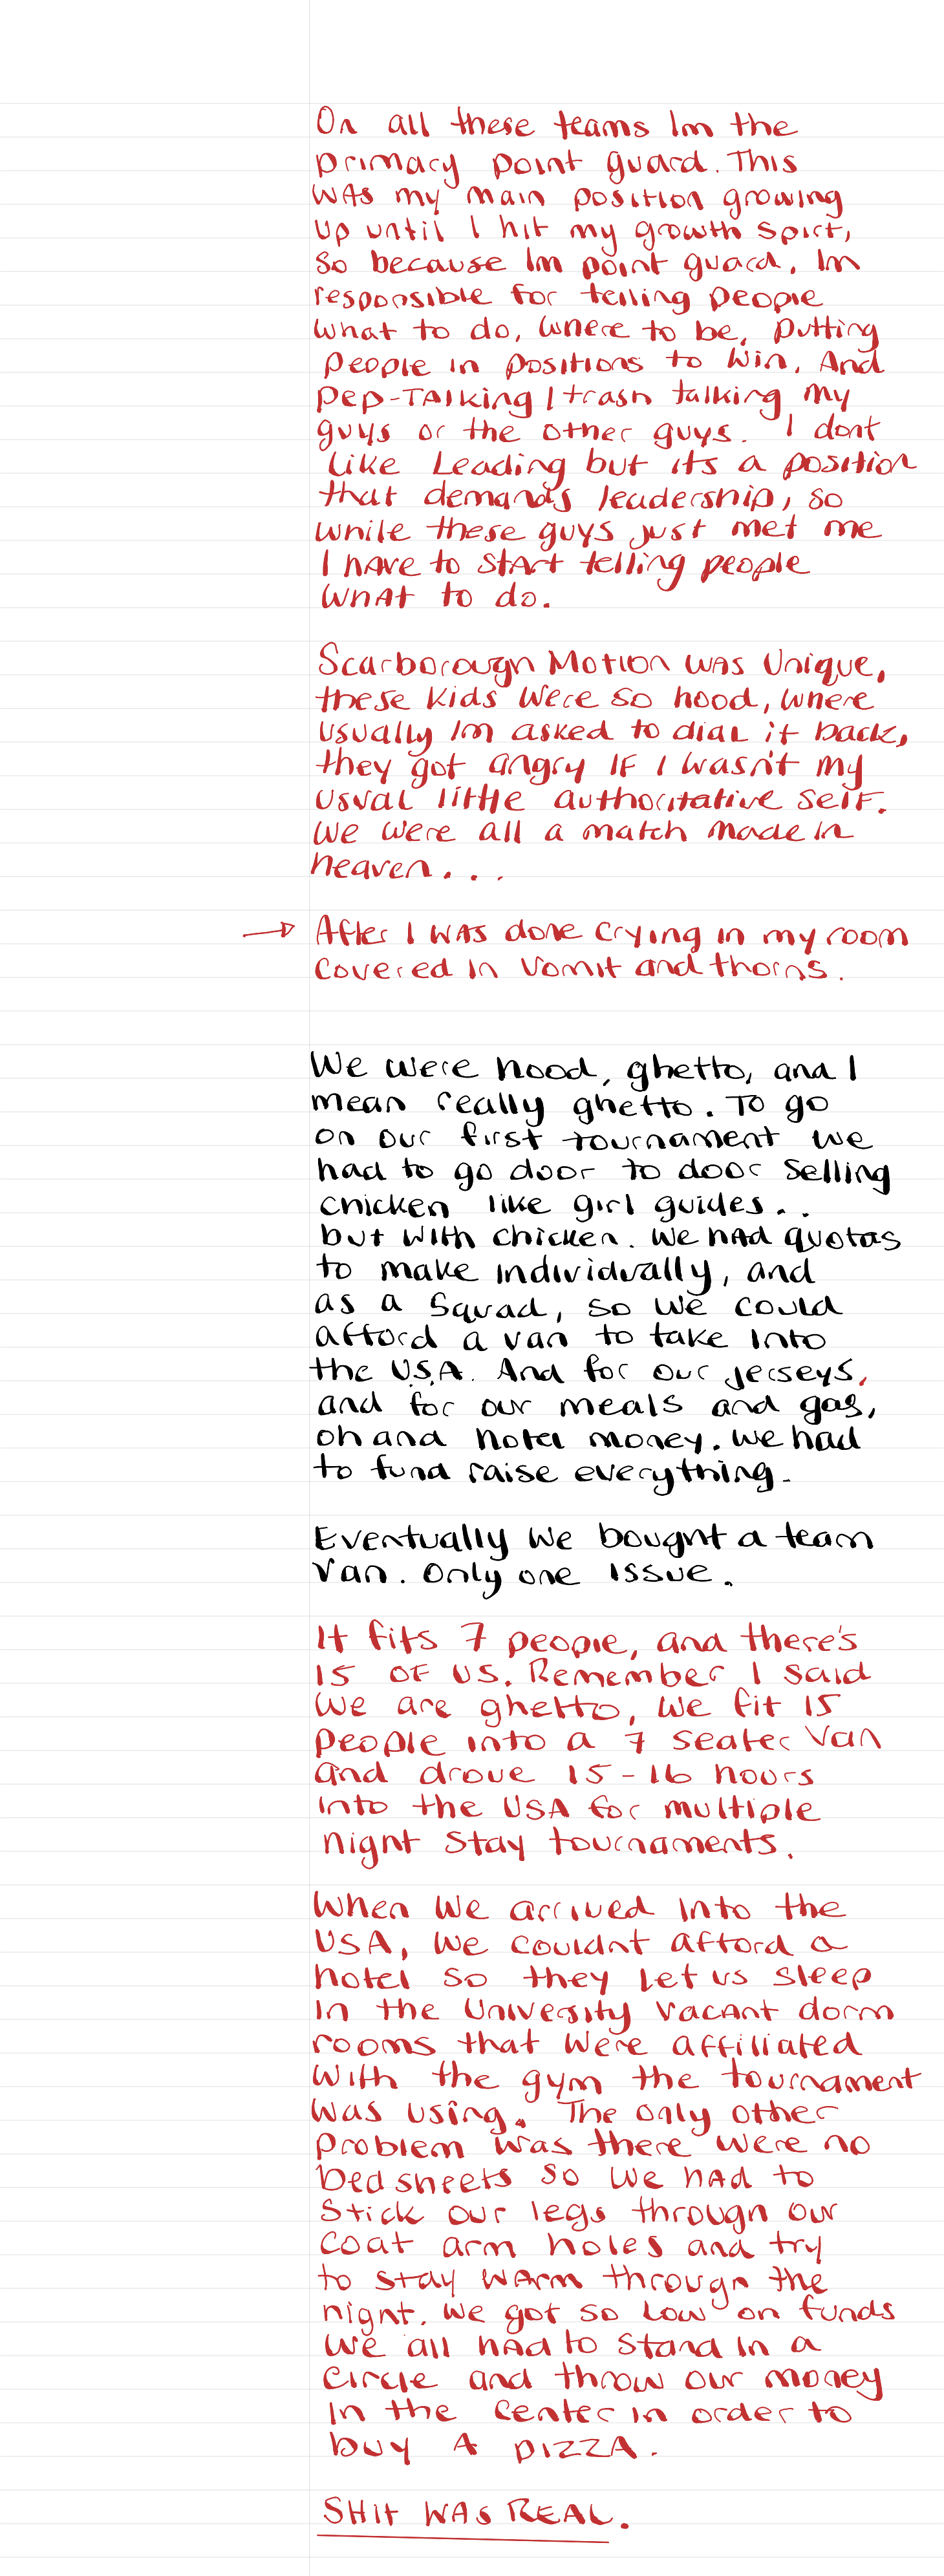 On all these teams Im the
primary point guard. This
was my main position growing
up until I hit my growth spirt,
So because Im point guard, Im
responsible for telling people
what to do, where to be, putting
people in positions to win, And
pep-TALKing / trash talking my
guys or the other guys. I dont
like leading but its a position
that demands leadership, so
while these guys just met me
I have to start telling people
what to do.
Scarborough Motion was Unique,
these kids were so hood, where
usually Im asked to dial it back,
they got angry IF I wasn't my
usual little authoritative self.
We were all a match made in
heaven...
→ After I was done crying in my room
covered in vomit and thorns.
We were hood, ghetto, and I
mean really ghetto. To go
on our first tournament we
had to go door to door selling
chicken like girl guides..
but with chicken. We had quotas
to make individually, and
as a squad, so we could
afford a van to take into
the U.S.A. And for our jerseys,
and for our meals and gas,
oh and hotel money. We had
to fund raise everything.
Eventually we bought a team
van. Only one issue.
It fits 7 people, and there's
15 OF US. Remember I said
we are ghetto, we fit 15
people into a 7 seater van
and drove 15-16 hours
into the USA for multiple
night stay tournaments.
When we arrived into the
USA, we couldnt afford a
hotel so they let us sleep
in the University vacant dorm
rooms that were affiliated
with the gym the tournament
was using. The only other
problem was there were no
bedsheets so we had to
stick our legs through our
coat arm holes and try
to stay warm through the
night. We got so low on funds
we all had to stand in a
circle and throw our money
in the center in order to
buy A PIZZA.
SHIT WAS REAL.